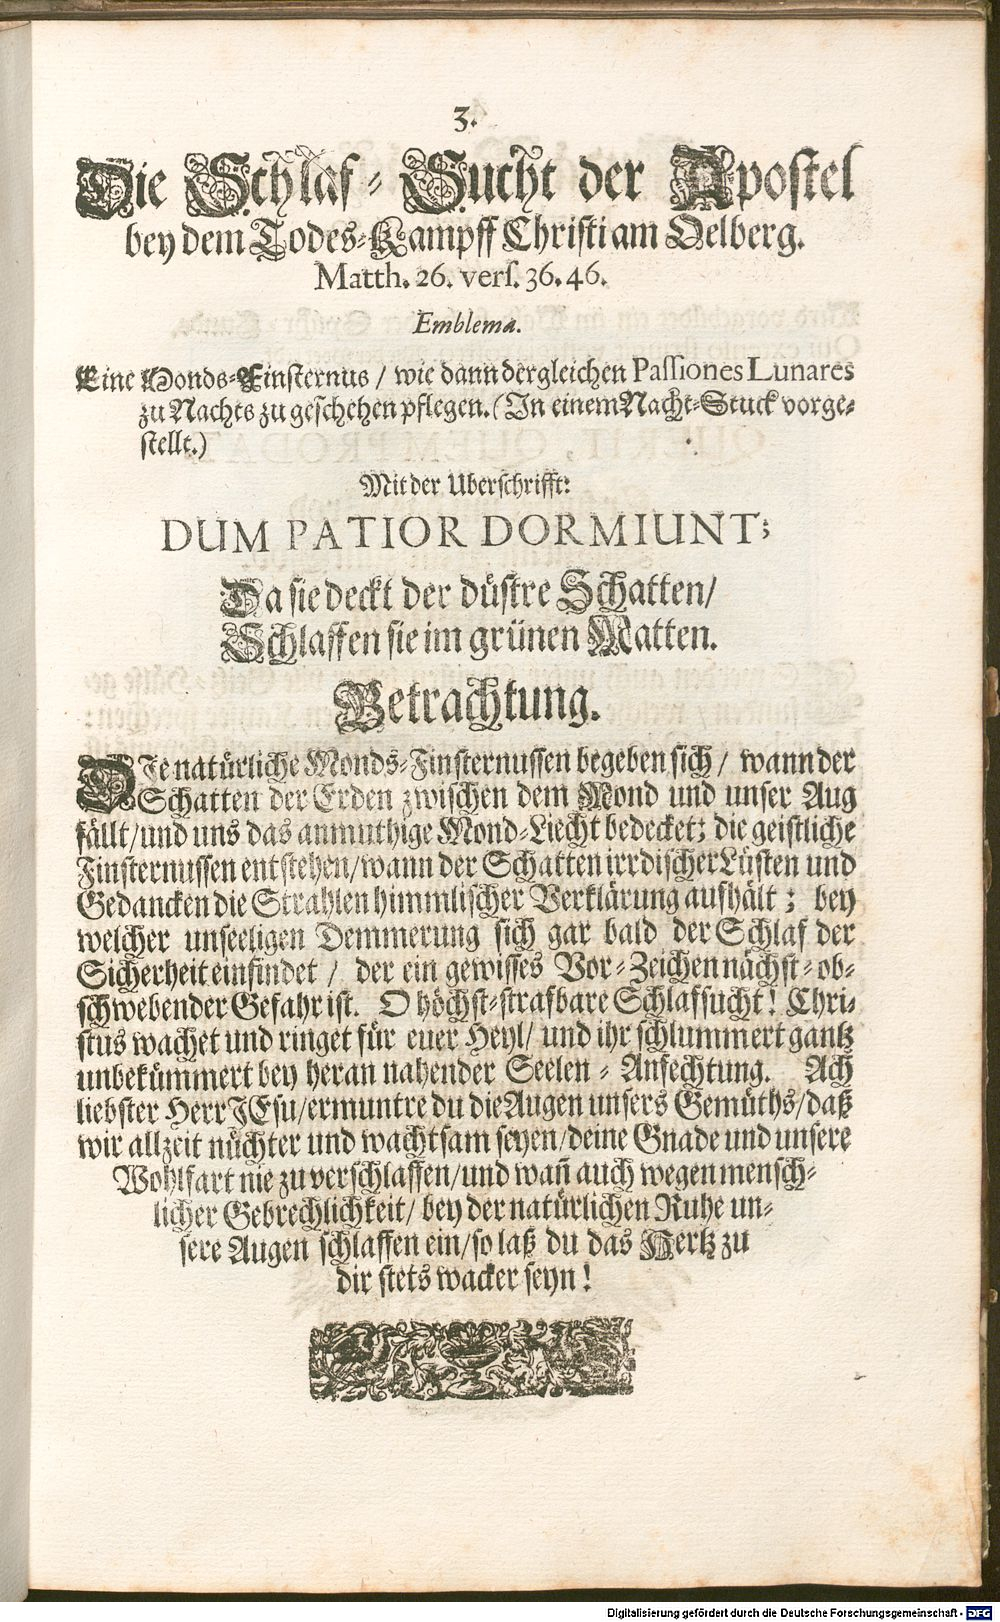 3.
Die Schlaf-Sucht der Apostel
bey dem Todes-Kampff Christi am Oelberg.
Matth. 26. vers. 36. 46.
Emblema.
Eine Monds-Finsternus / wie dann dergleichen Passiones Lunares
zu Nachts zu geschehen pflegen. (In einem Nacht-Stuck vorge-
stellt.)
Mit der Uberschrifft:
DUM PATIOR DORMIUNT;
Da sie deckt der düstre Schatten/
Schlaffen sie im grünen Matten.
Betrachtung.
DIe natürliche Monds-Finsternussen begeben sich / wann der
Schatten der Erden zwischen dem Mond und unser Aug
fällt/ und uns das anmuthige Mond-Liecht bedecket; die geistliche
Finsternussen entstehen/ wann der Schatten irrdischer Lüsten und
Gedancken die Strahlen himmlischer Verklärung aufhält; bey
welcher unseeligen Demmerung sich gar bald der Schlaf der
Sicherheit einfindet / der ein gewisses Vor-Zeichen nächst-ob-
schwebender Gefahr ist. O höchst-strafbare Schlafsucht! Chri-
stus wachet und ringet für euer Heyl/ und ihr schlummert gantz
unbekümmert bey heran nahender Seelen-Anfechtung. Ach
liebster Herr JEsu/ ermuntre du die Augen unsers Gemüths/ daß
wir allzeit nüchter und wachtsam seyen/ deine Gnade und unsere
Wohlfart nie zu verschlaffen/ und wañ auch wegen mensch-
licher Gebrechlichkeit/ bey der natürlichen Ruhe un-
sere Augen schlaffen ein/ so laß du das Hertz zu
dir stets wacker seyn!
Digitalisierung gefördert durch die Deutsche Forschungsgemeinschaft - DFG